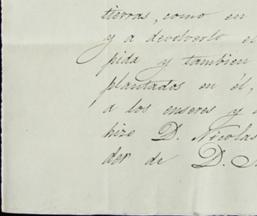 tierras, como en
y a devolverlo
pida y tambien
plantados en él,
a los enseres y
hizo D. Nicolas
der de D.